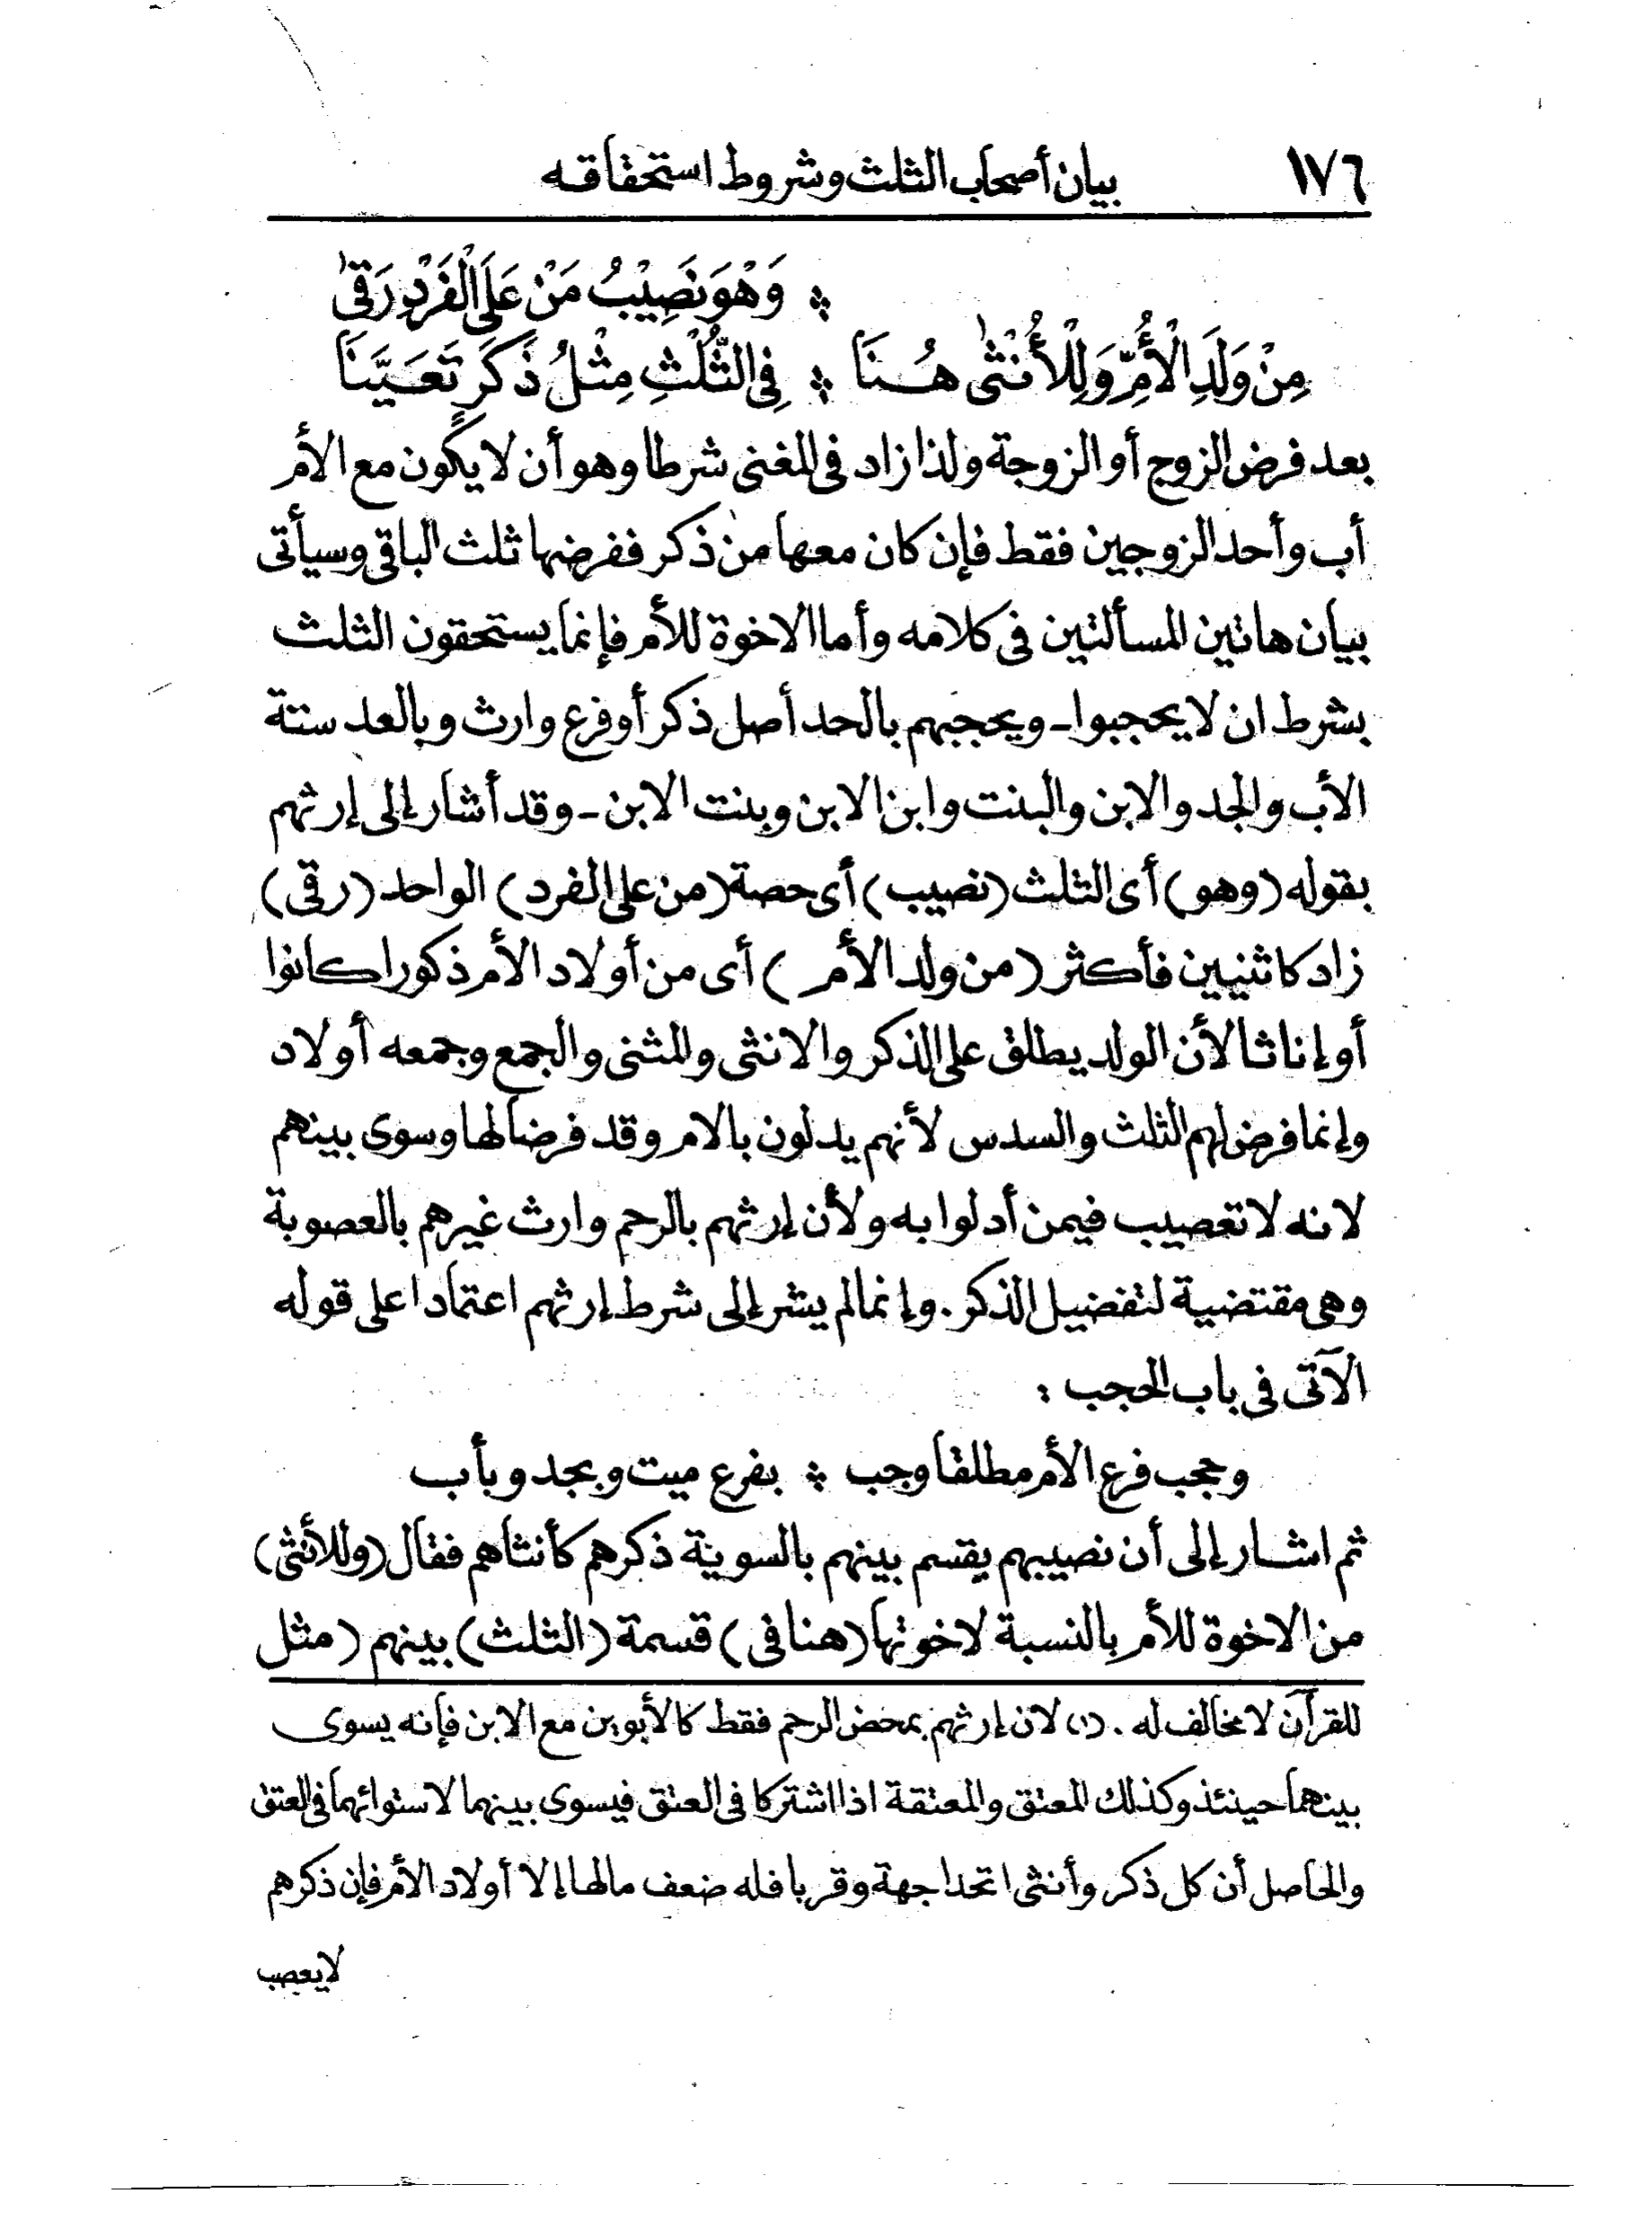 ١٧٦ بيان أصحاب الثلث وشروط استحقاقه
* وَهْوَ نَصِيْبُ مَنْ عَلَى الْفَرْدِ رَقىٰ
مِنْ وَلَدِ الْأُمِّ وَلِلْأُنْثىٰ هُنَا * فِى الثُّلْثِ مِثْلُ ذَكَرٍ تَعَيَّنَا
بعد فرض الزوج أو الزوجة ولذا زاد فى المغنى شرطا وهو أن لا يكون مع الأم
أب وأحد الزوجين فقط فإن كان معها من ذكر ففرضها ثلث الباقى وسيأتى
بيان هاتين المسألتين فى كلامه وأما الاخوة للأم فإنما يستحقون الثلث
بشرط ان لا يحجبوا ـ ويحجبهم بالحد أصل ذكر أو فرع وارث وبالعد ستة
الأب والجد والابن والبنت وابن الابن وبنت الابن ـ وقد أشار إلى إرثهم
بقوله (وهو) أى الثلث (نصيب) أى حصة (من على الفرد) الواحد (رقى)
زاد كاثنيين فأكثر (من ولد الأم) أى من أولاد الأم ذكورا كانوا
أو إناثا لأن الولد يطلق على الذكر والانثى والمثنى والجمع وجمعه أولاد
وإنما فرض لهم الثلث والسدس لأنهم يدلون بالام وقد فرضا لها وسوى بينهم
لانه لا تعصيب فيمن أدلوا به ولأن إرثهم بالرحم وارث غيرهم بالعصوبة
وهى مقتضية لتفضيل الذكر . وإنما لم يشر إلى شرط إرثهم اعتمادا على قوله
الآتى فى باب الحجب :
وحجب فرع الأم مطلقا وجب * بفرع ميت وبجد وبأب
ثم اشار إلى أن نصيبهم يقسم بينهم بالسوية ذكرهم كأنثاهم فقال (وللأنثى)
من الاخوة للأم بالنسبة لاخوتها (هنا فى) قسمة (الثلث) بينهم (مثل
للقرآن لا مخالف له . (١) لان إرثهم بمحض الرحم فقط كالأبوين مع الابن فإنه يسوى
بينهما حينئذ وكذلك المعتق والمعتقة اذا اشتركا فى العتق فيسوى بينهما لاستوائهما فى العتق
والحاصل أن كل ذكر وأنثى اتحدا جهة وقربا فله ضعف مالها إلا أولاد الأم فإن ذكرهم
لايعصب